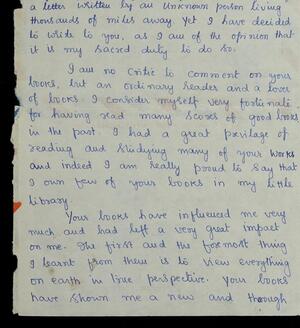 a letter written by an unknown person living
thousands of miles away yet I have decided
to write to you, as I am of the opinion that
it is my sacred duty to do so.
I am no critic to comment on your
books, but an ordinary reader and a lover
of books. I consider myself very fortunate
for having read many scores of good books
in the past. I had a great privilage of
reading and studying many of your works
and indeed I am really proud to say that
I own few of your books in my little
library
Your books have influenced me very
much and had left a very great impact
on me. The first and the foremost thing
I learnt from them is to view everything
on earth in true perspective. Your books
have shown me a new and through